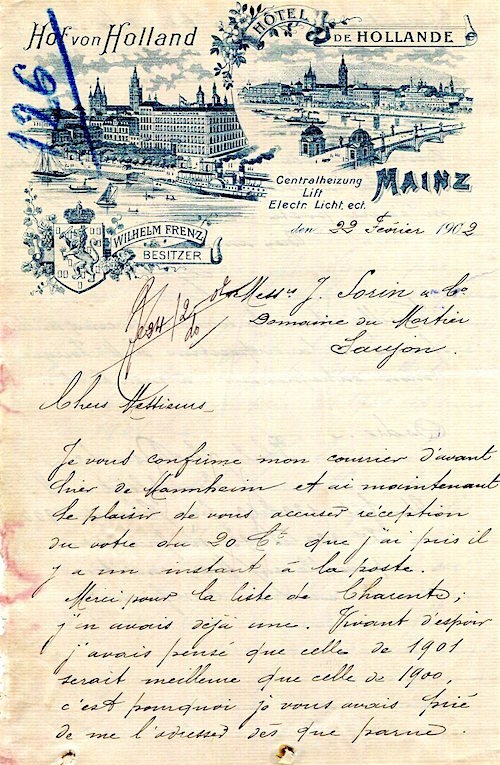 126
Hof von Holland
HÔTEL DE HOLLANDE
Centralheizung
Lift
Electr. Licht, ect.
MAINZ
WILHELM FRENZ
BESITZER
den 22 Février 1902
Messrs J. Sorin & Co
Domaine du Mortier
Saujon.
Chers Messieurs
Je vous confirme mon courrier d'avant
hier de Mannheim et ai maintenant
le plaisir de vous accuser réception
du votre du 20 Ct que j'ai pris il
y a un instant à la poste.
Merci pour la liste de Charente;
j'en avais déjà une. Vivant d'espoir
j'avais pensé que celle de 1901
serait meilleure que celle de 1900,
c'est pourquoi je vous avais prié
de me l'adresser dès que parue.